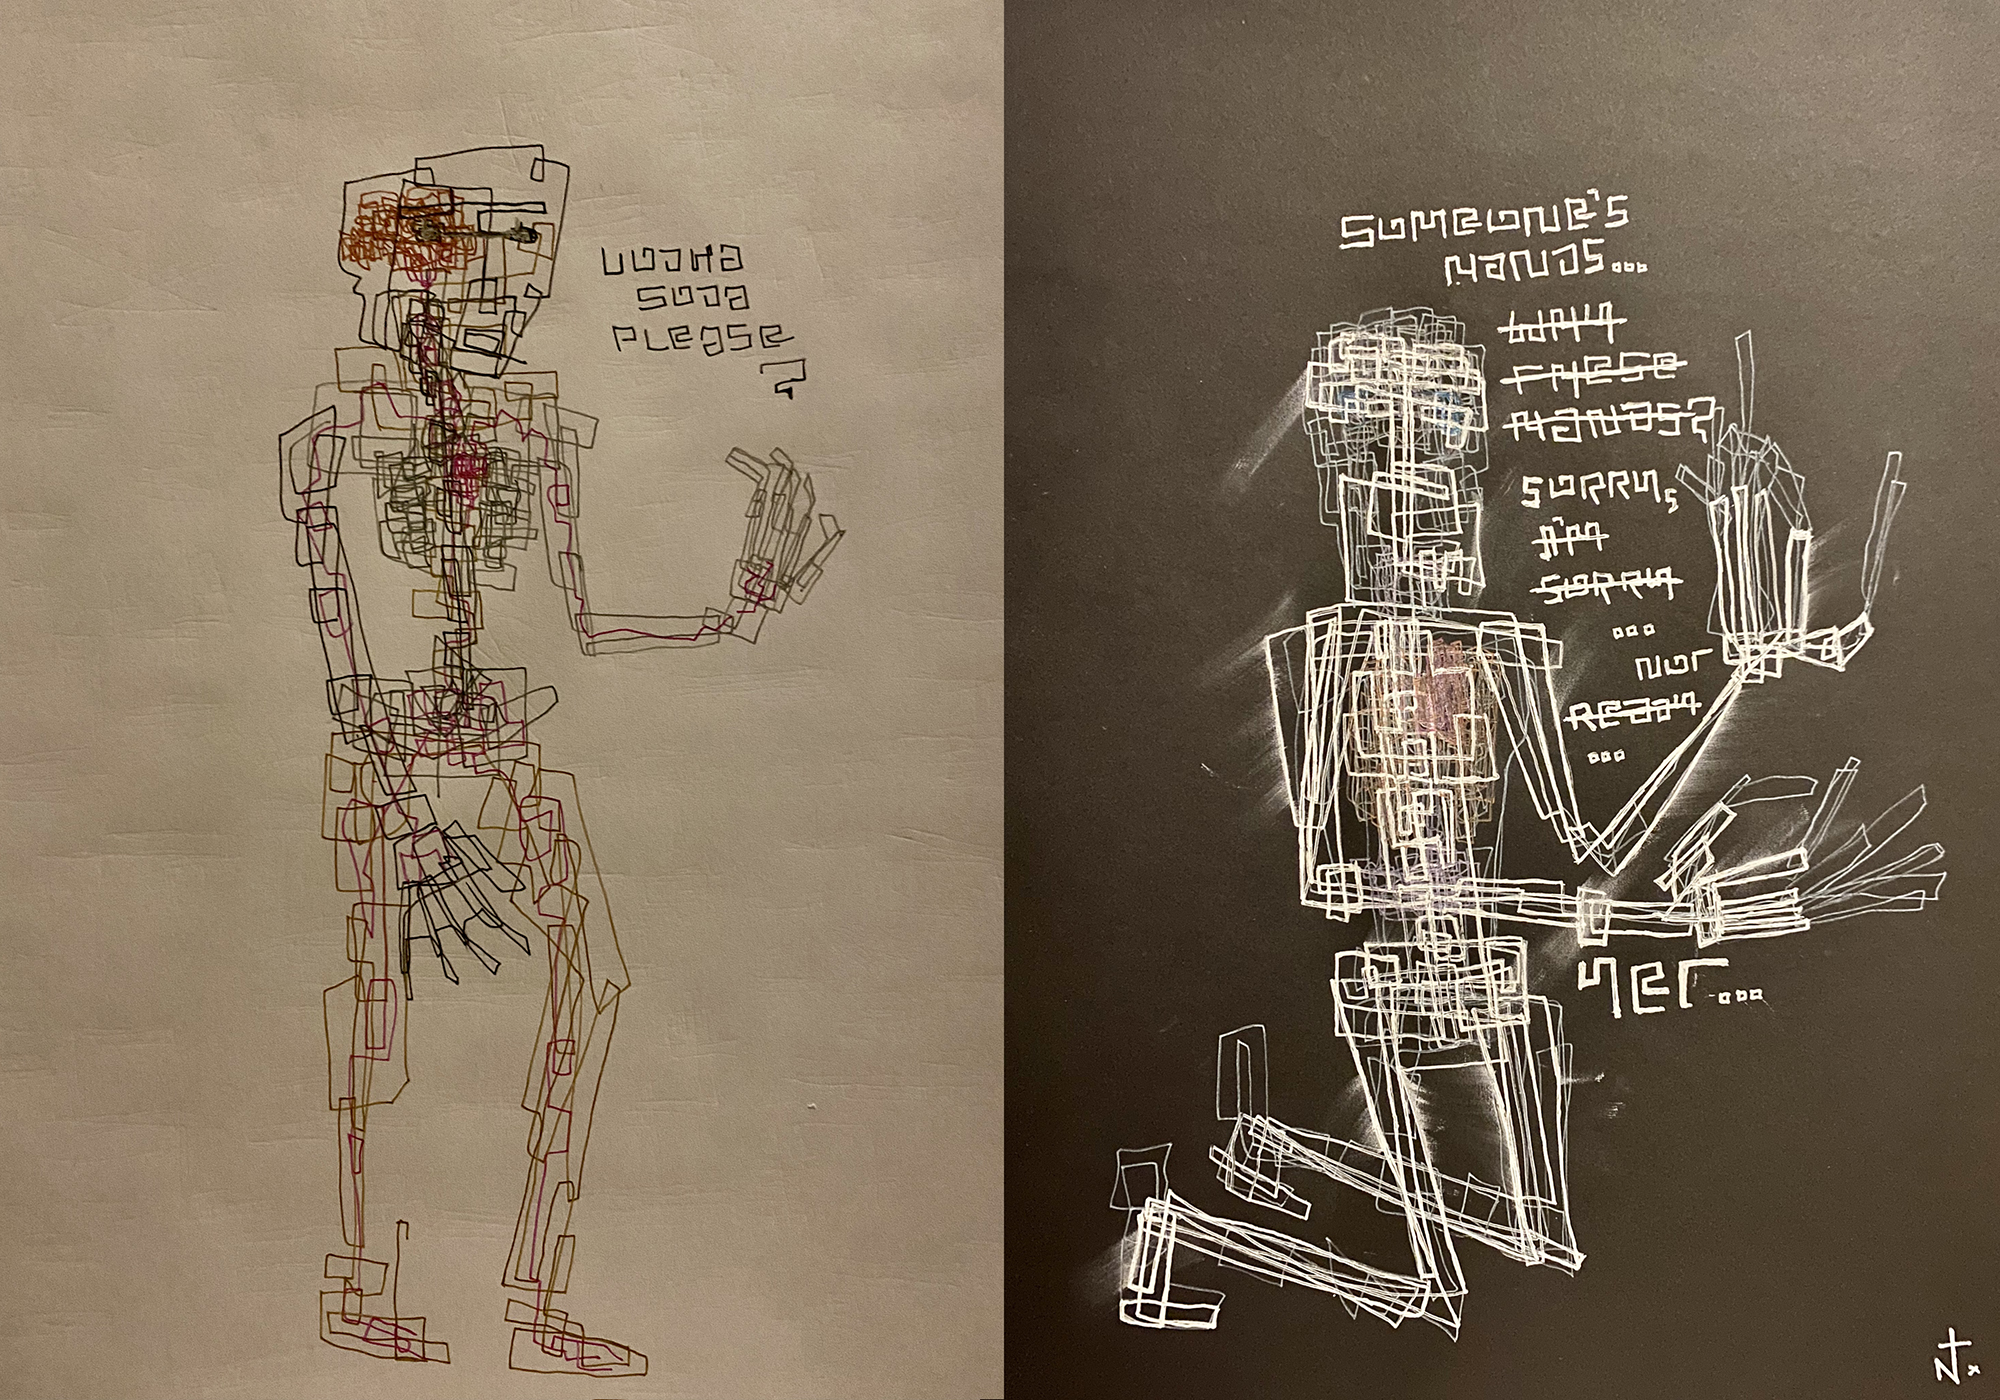 VODKA
SODA
PLEASE
?
SOMEONE'S
HANDS...
WHY
THESE
HANDS?
SORRY,
I'M
SORRY
...
NOT
READY
...
YET...
N